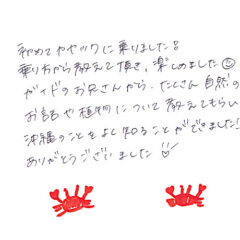 初めてカヤックに乗りました!
乗り方から教えて頂き、楽しめました☺
ガイドのお兄さんから、たくさん自然の
お話や植物について教えてもらい
沖縄のことをよく知ることができました!
ありがとうございました